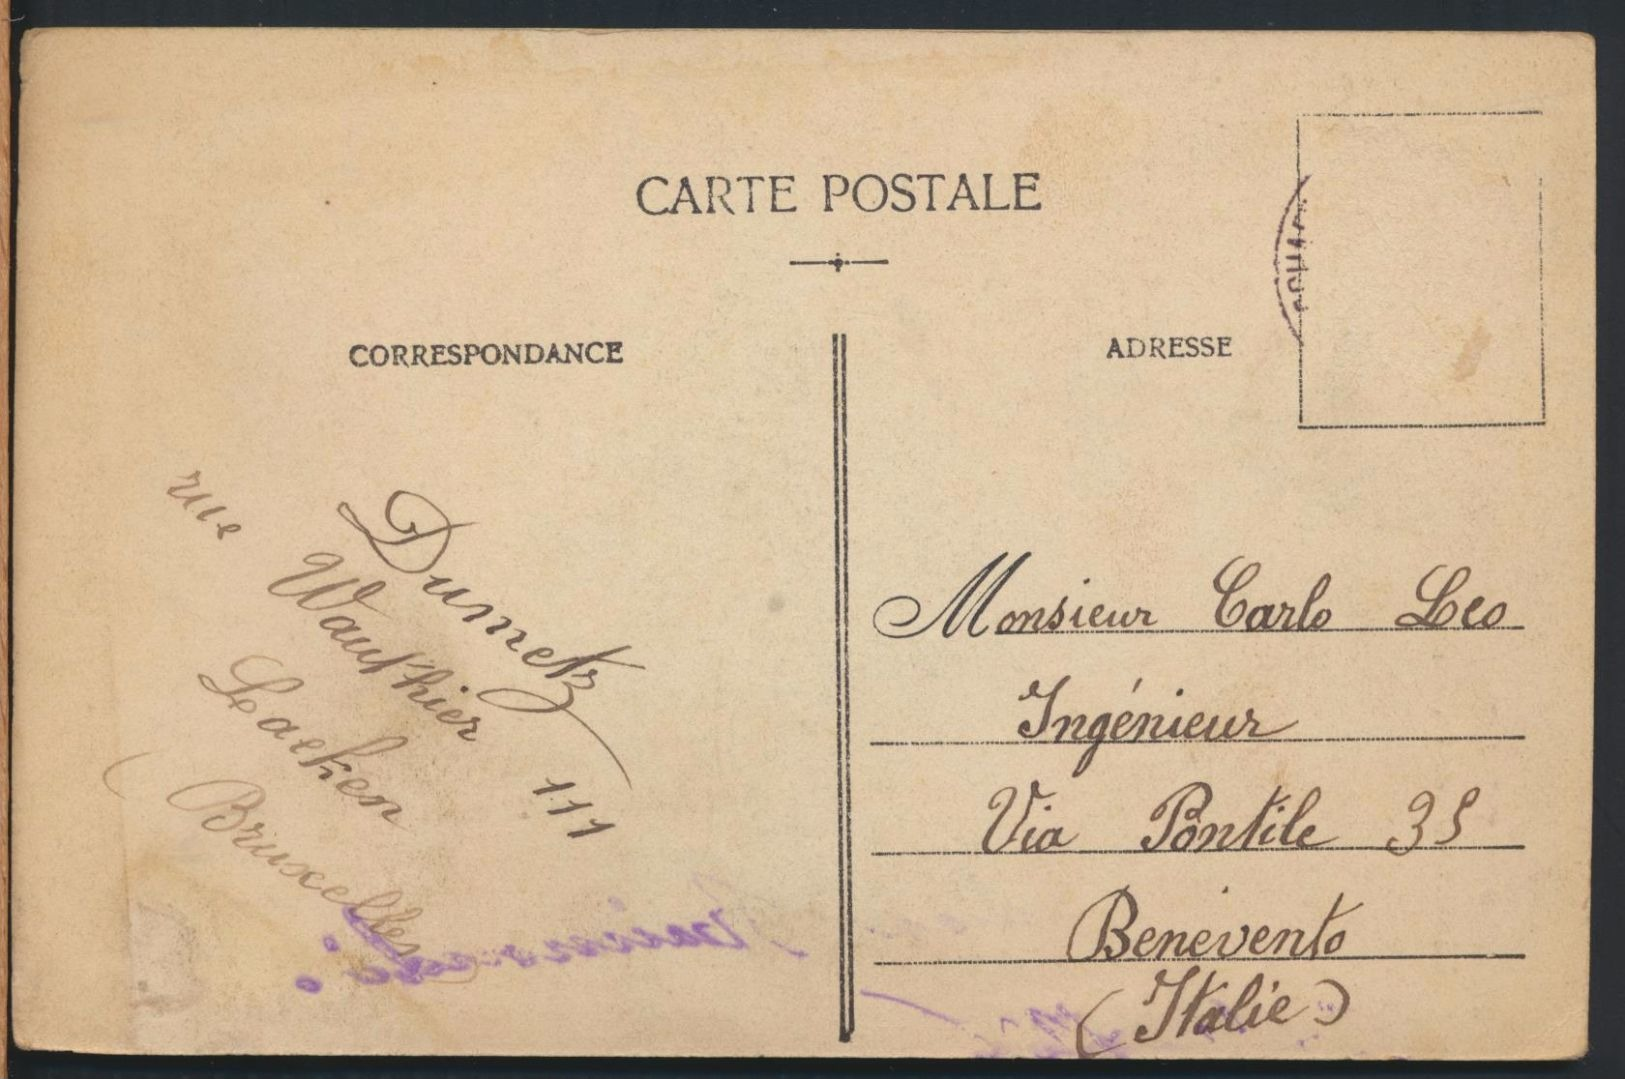 CARTE POSTALE
CORRESPONDANCE
ADRESSE
Dumetz
rue Wauthier 111
Laeken
(Bruxelles)
Monsieur Carlo Leo
Ingénieur
Via Pontile 35
Benevento
(Italie)